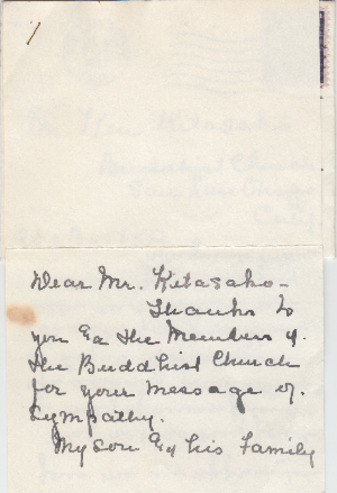 Dear Mr. Kitasako -
Thanks to
you & the Members of
the Buddhist Church
for your message of
Sympathy.
My son & his Family